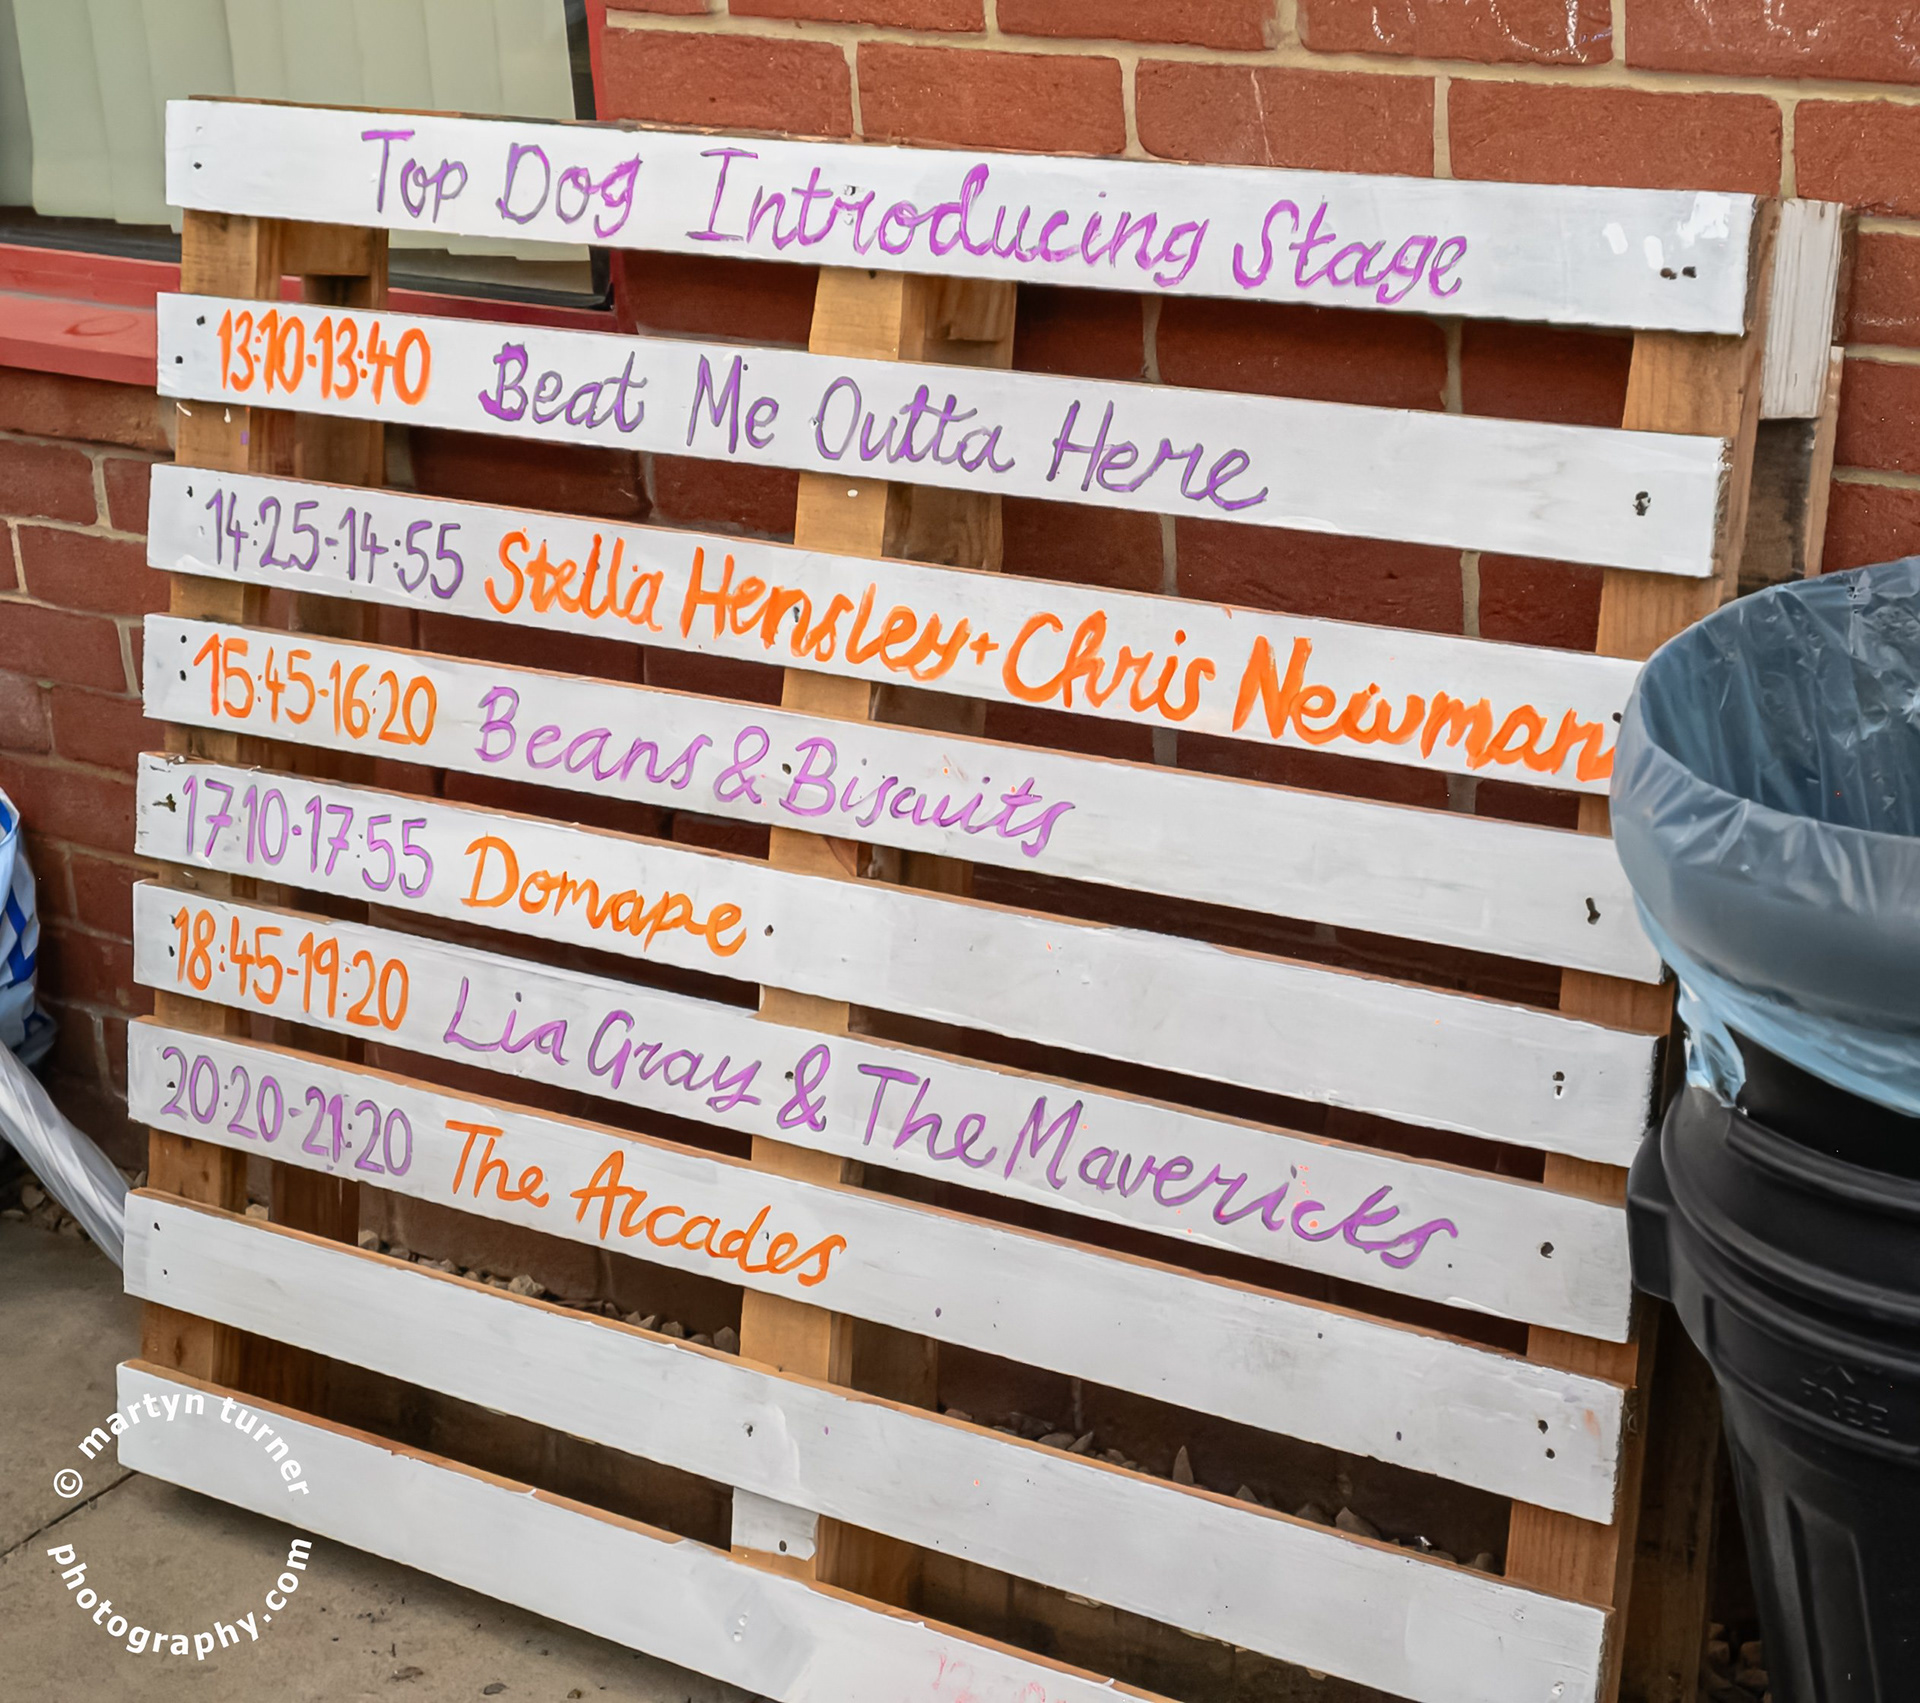 Top Dog Introducing Stage
13:10-13:40 Beat Me Outta Here
14:25-14:55 Stella Hensley + Chris Newman
15:45-16:20 Beans & Biscuits
17:10-17:55 Domape
18:45-19:20 Lia Gray & The Mavericks
20:20-21:20 The Arcades
© martyn turner
photography.com